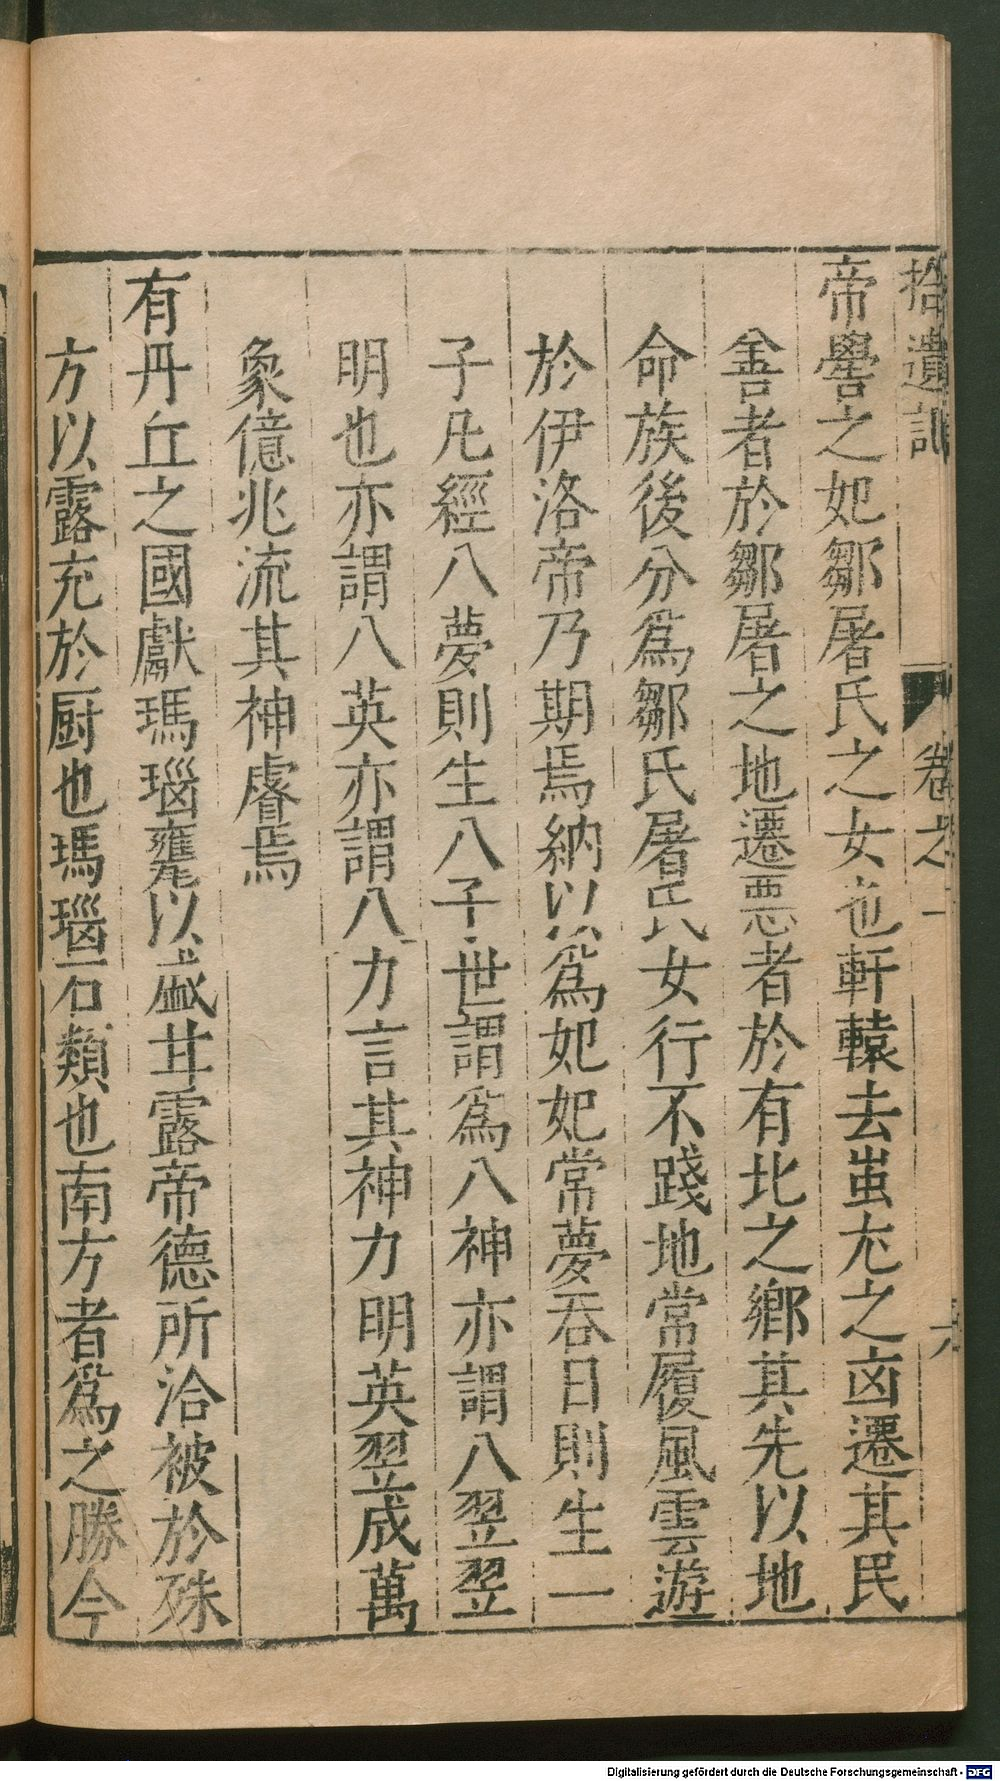 拾遺記 卷之一 六
帝嚳之妃鄒屠氏之女也軒轅去蚩尤之凶遷其民
善者於鄒屠之地遷惡者於有北之鄉其先以地
命族後分爲鄒氏屠氏女行不踐地常履風雲遊
於伊洛帝乃期焉納以爲妃妃常夢吞日則生一
子凡經八夢則生八子世謂爲八神亦謂八翌翌
明也亦謂八英亦謂八力言其神力明英翌成萬
象億兆流其神睿焉
有丹丘之國獻瑪瑙甕以盛甘露帝德所洽被於殊
方以露充於厨也瑪瑙石類也南方者爲之勝今
Digitalisierung gefördert durch die Deutsche Forschungsgemeinschaft - DFG